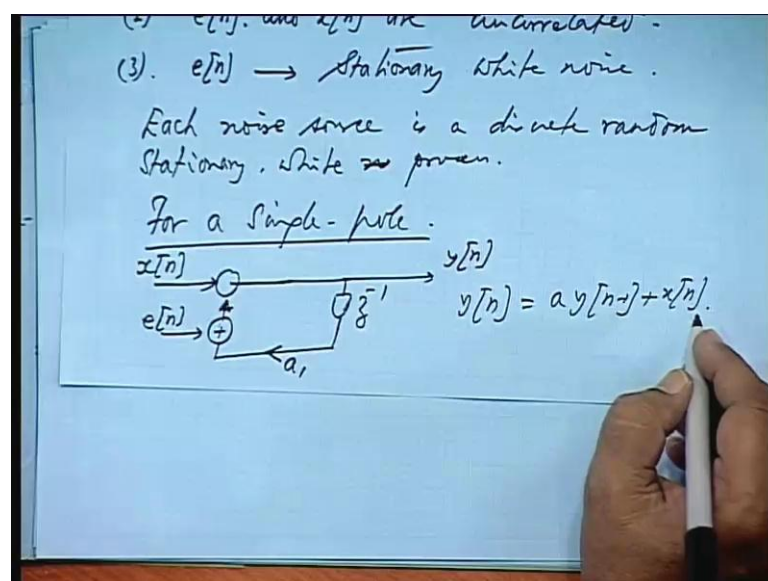 (2) e[n]. and x[n] are uncorrelated.
(3). e[n] → Stationary white noise.
Each noise source is a discrete random
Stationary. White process.
For a Single-pole.
x[n]
y[n]
e[n]
+
z⁻¹
a₁
y[n] = a y[n-1] + x[n].